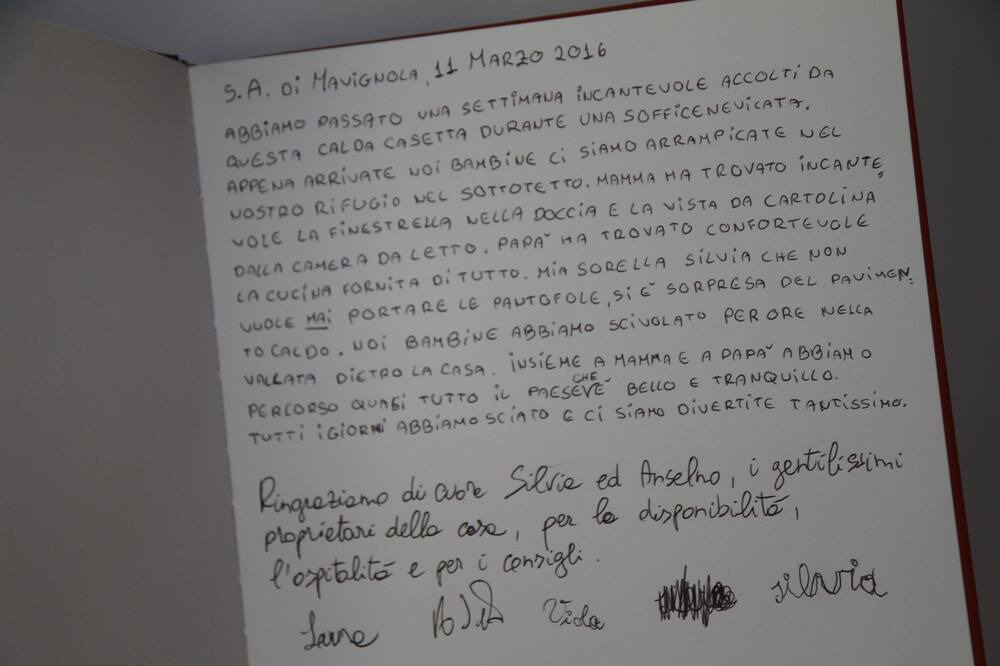 S.A. DI MAVIGNOLA, 11 MARZO 2016
ABBIAMO PASSATO UNA SETTIMANA INCANTEVOLE ACCOLTI DA
QUESTA CALDA CASETTA DURANTE UNA SOFFICENEVICATA.
APPENA ARRIVATE NOI BAMBINE CI SIAMO ARRAMPICATE NEL
NOSTRO RIFUGIO NEL SOTTOTETTO. MAMMA HA TROVATO INCANTE=
VOLE LA FINESTRELLA NELLA DOCCIA E LA VISTA DA CARTOLINA
DALLA CAMERA DA LETTO. PAPA' HA TROVATO CONFORTEVOLE
LA CUCINA FORNITA DI TUTTO. MIA SORELLA SILVIA CHE NON
VUOLE MAI PORTARE LE PANTOFOLE, SI E' SORPRESA DEL PAVIMEN=
TO CALDO. NOI BAMBINE ABBIAMO SCIVOLATO PER ORE NELLA
VALLATA DIETRO LA CASA. INSIEME A MAMMA E A PAPA' ABBIAMO
PERCORSO QUASI TUTTO IL PAESE CHE E' BELLO E TRANQUILLO.
TUTTI I GIORNI ABBIAMO SCIATO E CI SIAMO DIVERTITE TANTISSIMO.
Ringraziamo di cuore Silvia ed Anselmo, i gentilissimi
proprietari della casa, per la disponibilità,
l'ospitalità e per i consigli.
Viola silvia